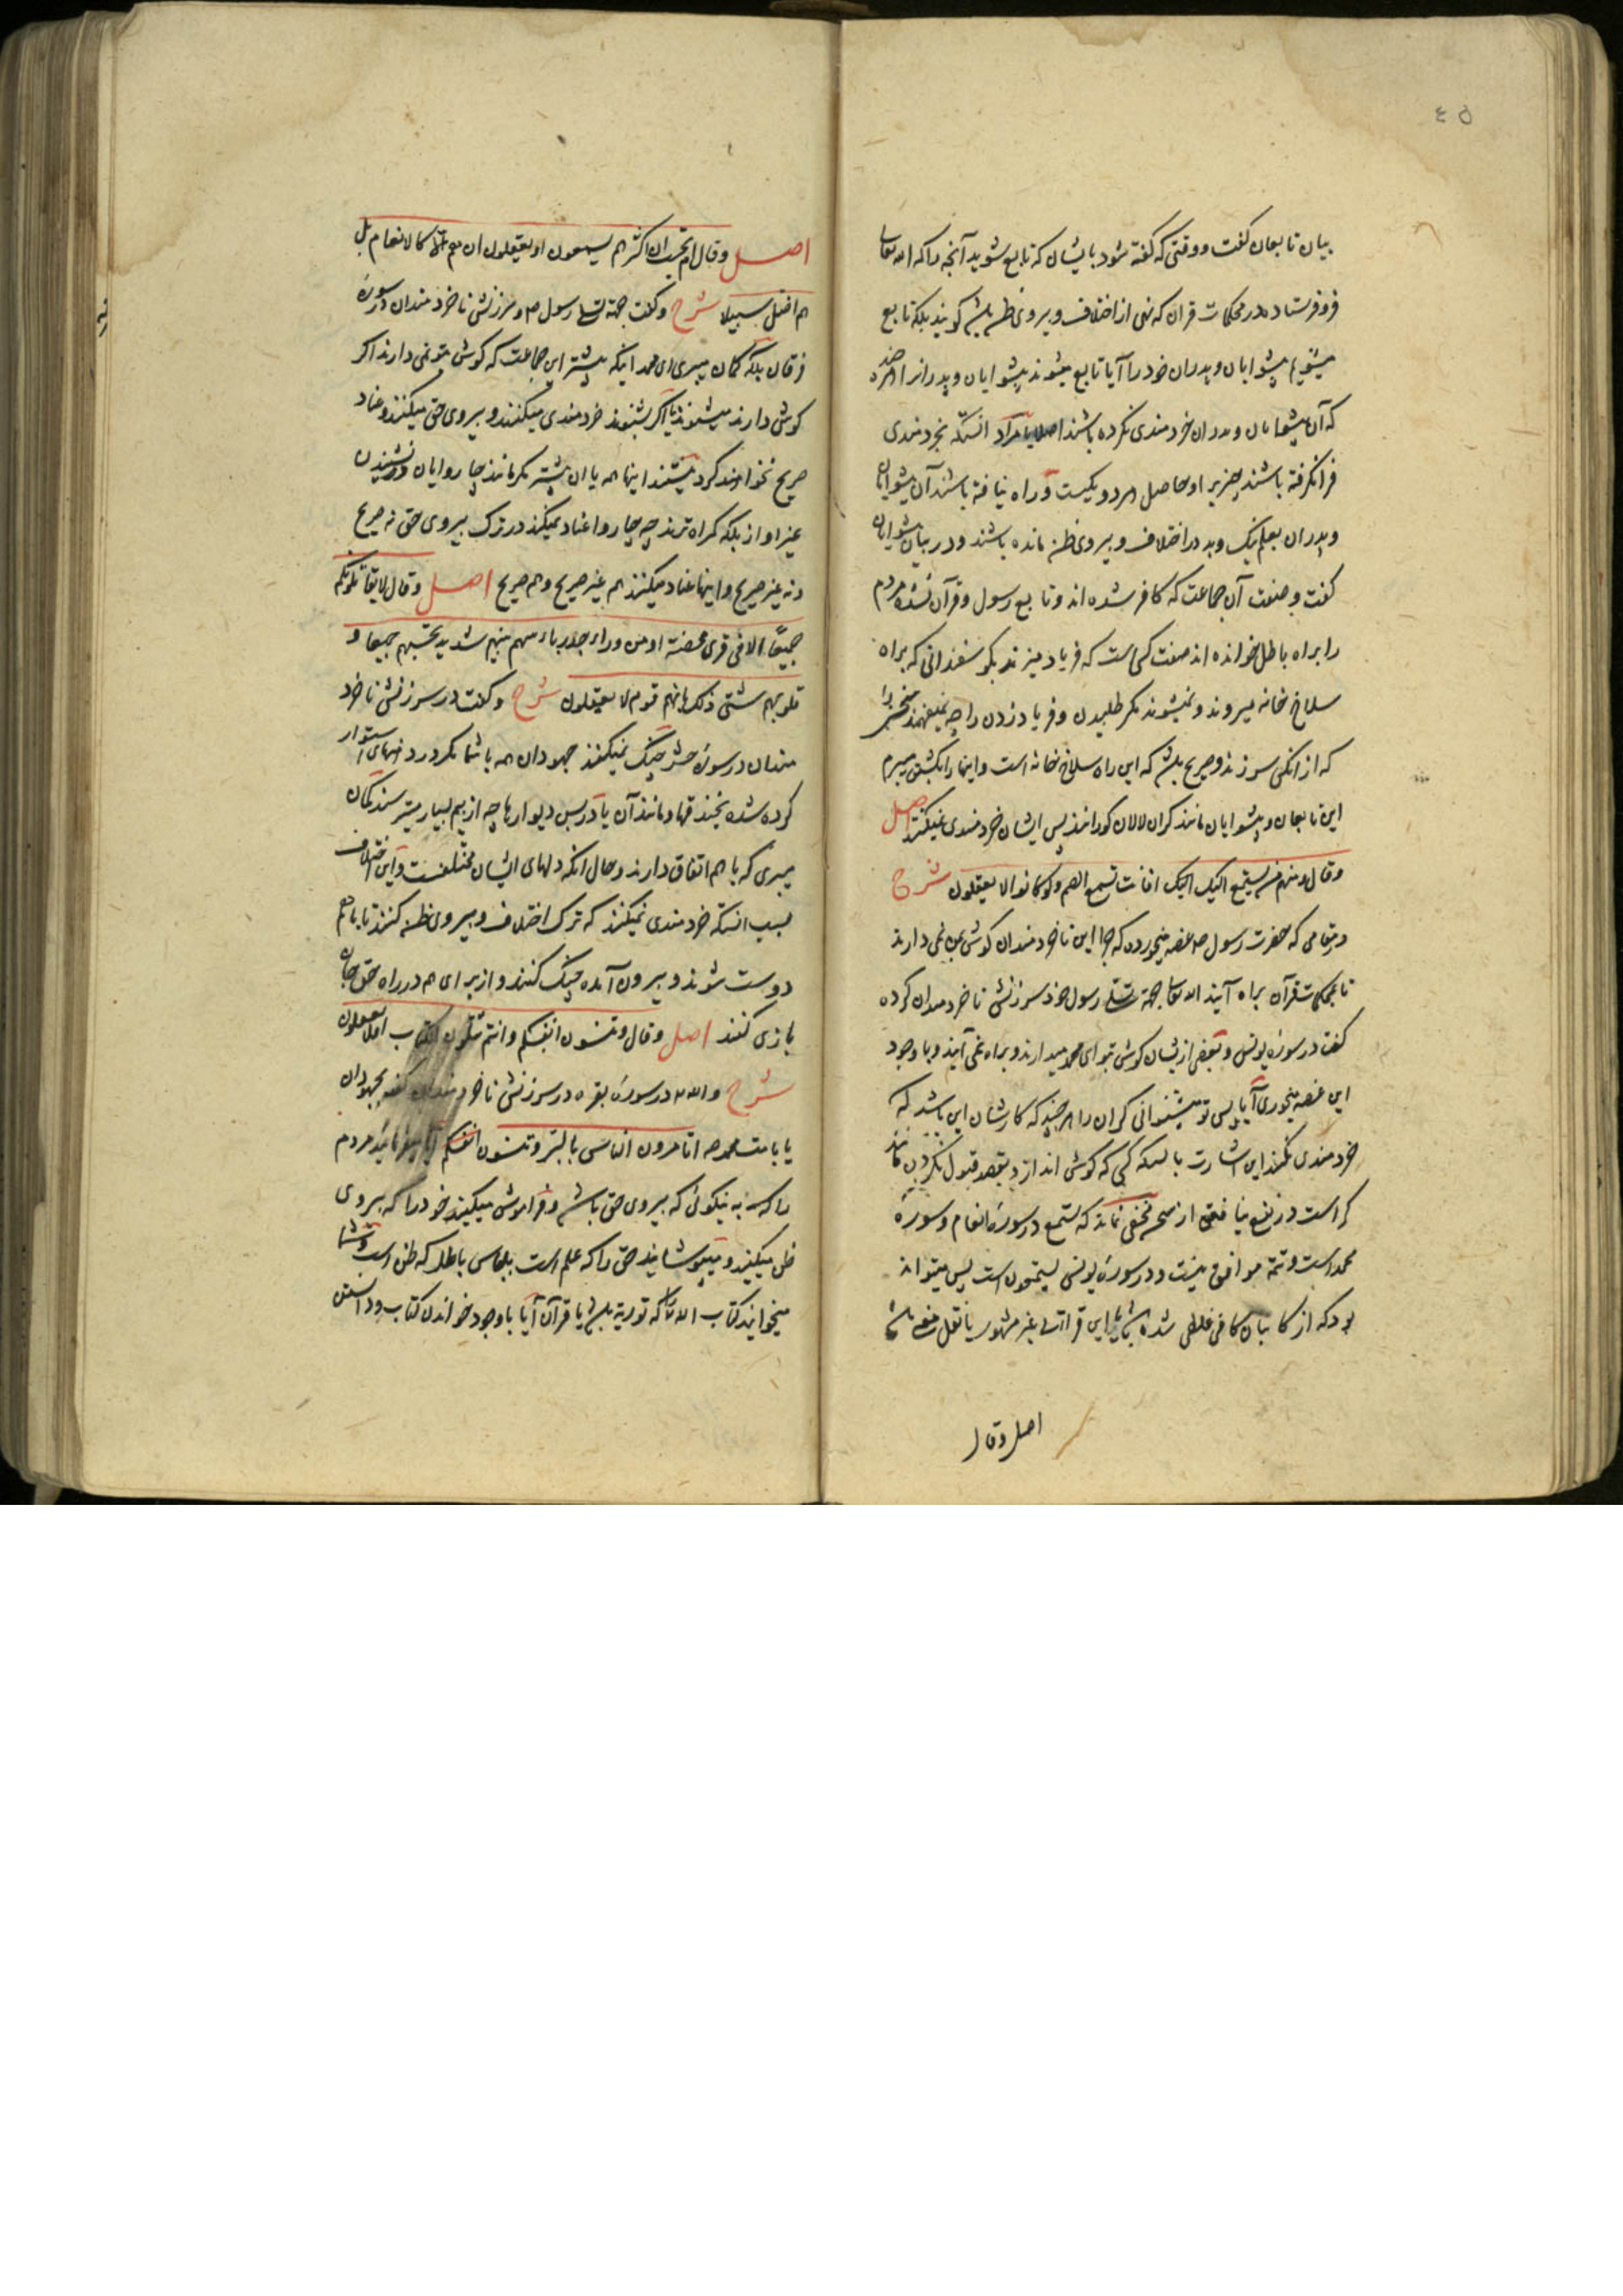 ٤٥
بیان تابعان گفت و وقتی که گفته شود بایشان که تابع شوید آنچه را که الله تعالی
فروفرستاده در محکمات قران که نهی از اختلاف و پیروی ظن باشد گویند بلکه تابع
میشویم پیشوایان و پدران خود را آیا تابع میشوند پیشوایان و پدرانرا هر چند
که آن پیشوایان و پدران خردمندی نکرده باشند اصلا یا مراد انستکه بخردمندی
فرا نگرفته باشند چیزیرا و حاصل هر دو یکیست و راه نیافته باشند آن پیشوایان
و پدران بعلم نیک و بد در اختلاف و پیروی ظن مانده باشند و در بیان پیشوایان
گفت و صفت آن جماعت که کافر شده اند و تابع رسول و قرآن نشده مردم
را براه باطل خوانده اند صفت کسی است که فریاد میزند بگوسفندانی که براه
سلاخ خانه میروند و نمیشوند مگر طلبیدن و فریاد زدن را چه نمیفهمند سخنی را
که از انکس سرزند و صریح باشد که این راه سلاخ خانه است و اینها را بکشتن میبرم
این تابعان و پیشوایان مانند کران لالان کورانند پس ایشان خردمندی نمیکنند اصل
وقال و منهم من یستمع الیک افانت تسمع الصم ولو کانوا لا یعقلون شرح
در مقامی که حضرت رسول ص غصه میخورده که چرا این ناخردمندان گوش بمن نمی دارند
تا بمحکمات قرآن براه آیند الله تعالی جهة تسلی رسول خود سرزنش ناخردمندان کرده
گفت در سورهٔ یونس و بعضی از یشان گوش بتو ای محمد میدارند و براه نمی آیند و با وجود
این غصه میخوری آیا پس تو میشنوانی کران را هر چند که کارشان این باشد که
خردمندی نکنند این اشارت بانستکه کسی که گوش اندازد بقصد قبول نکردن مانند
کر است در نفع نیافتن از سخن مخفی نماند که یستمع در سورهٔ انعام و سورهٔ
محمد است و تتمه موافق نیست و در سورهٔ یونس یستمعون است پس میتواند
بود که از کاتبان کافی غلطی شده باشد یا این قرائت غیر مشهور یا نقل بمعنی باشد
اصل وقال
اصل وقال ام تحسب ان اکثرهم یسمعون او یعقلون ان هم الا کالانعام بل
هم اضل سبیلا شرح و گفت جهة تسلی رسول ص و سرزنش ناخردمندان در سورهٔ
فرقان بلکه گمان میبری ای محمد اینکه بیشتر این جماعت که گوش بتو نمی دارند اگر
گوش دارند میشنوند یا اگر بشنوند خردمندی میکنند و پیروی حق میکنند و عناد
صریح نخواهند کرد نیستند اینها همه یا ان بیشتر مگر مانند چاروایان در نشنیدن
غیر اواز بلکه گمراه ترند چه چاروا عناد نمیکند در ترک پیروی حق نه صریح
و نه غیر صریح و اینها عناد میکنند هم غیر صریح و هم صریح اصل وقال لا یقاتلونکم
جمیعًا الا فی قری محصنة او من وراء جدر باسهم بینهم شدید تحسبهم جمیعا و
قلوبهم شتی ذلک بانهم قوم لا یعقلون شرح و گفت در سرزنش ناخرد
مندان در سورهٔ حشر جنگ نمیکنند جهودان همه با شما مگر در دیههای استوار
کرده شده بخندقها و مانند آن یا در پس دیوارها چه از هم بسیار میترسند گمان
میبری که با هم اتفاق دارند و حال انکه دلهای ایشان مختلفست و این اختلاف
بسبب انستکه خردمندی نمیکنند که ترک اختلاف و پیروی ظن کنند تا با هم
دوست شوند و بیرون آمده جنگ کنند و از برای هم در راه حق جان
بازی کنند اصل وقال و تنسون انفسکم و انتم تتلون الکتاب افلا تعقلون
شرح و الله در سورهٔ بقره در سرزنش ناخردمندان گفته بجهودان
یا بامت محمد ص اتامرون الناس بالبر و تنسون انفسکم آیا میفرمائید مردم
را که به نیکوئی که پیروی حق باشد و فراموش میکنید خود را که پیروی
ظن میکنید و میپوشانید حق را که علم است بلباس باطل که ظن است و شما
میخوانید کتاب الله تعالی که توریة باشد یا قرآن آیا با وجود خواندن کتاب و دانستن